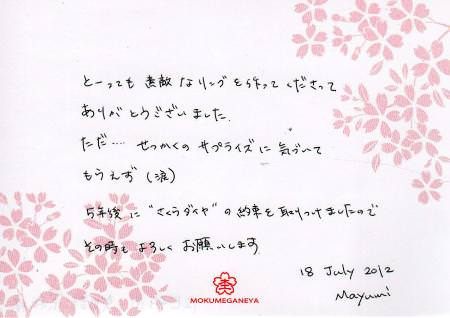 とーっても 素敵なリングを作ってくださって
ありがとうございました.
ただ…. せっかくの サプライズに 気づいて
もらえず (涙)
5年後に "さくらダイヤ" の約束を取りつけましたので
その時も よろしく お願いします
18 July 2012
Mayumi
MOKUMEGANEYA